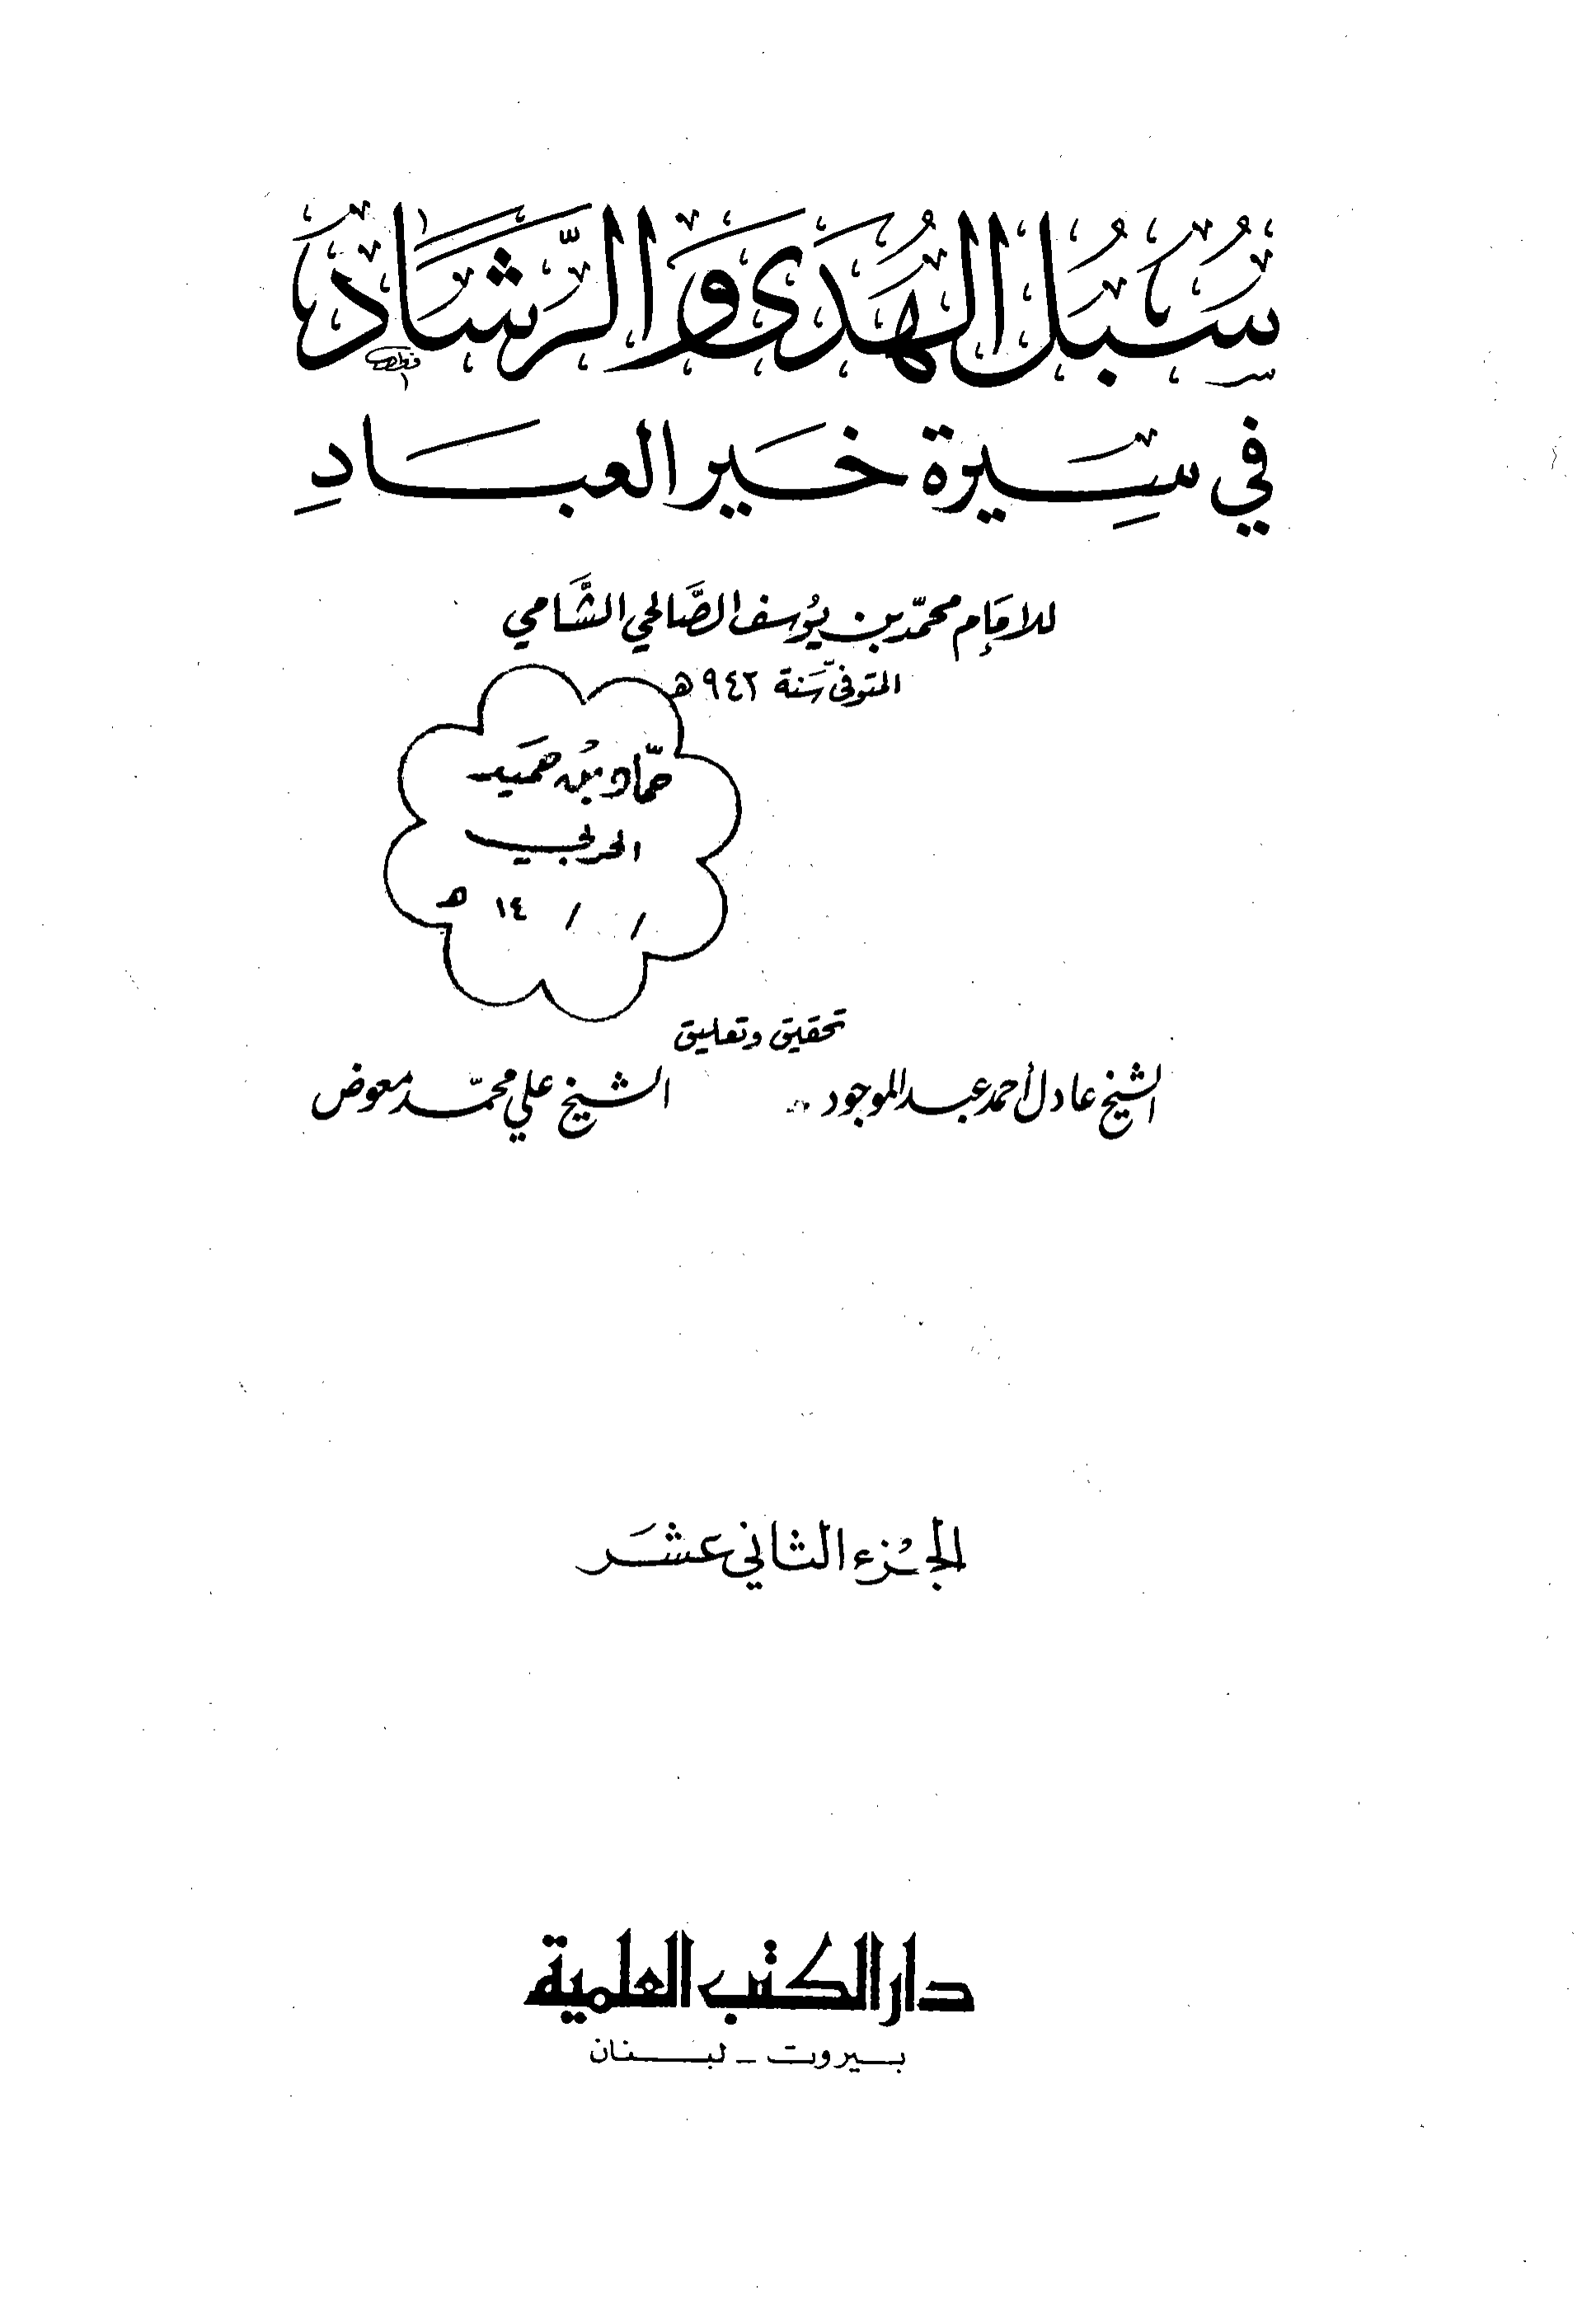 سُبُلُ الهُدَى وَالرَّشَادِ
في سِيرة خَير العبَادِ
للإمَام محمّد بن يُوسف الصَّالحي الشَّامي
المتوفى سَنة ٩٤٢ هـ
حمّاد بن حميد
الحربي
/ / ١٤ هـ
تحقيق وتعليق
الشيخ عادل أحمد عبد الموجود الشيخ علي محمّد معوض
الجُزء الثاني عشَر
دار الكتب العلمية
بيروت - لبنان